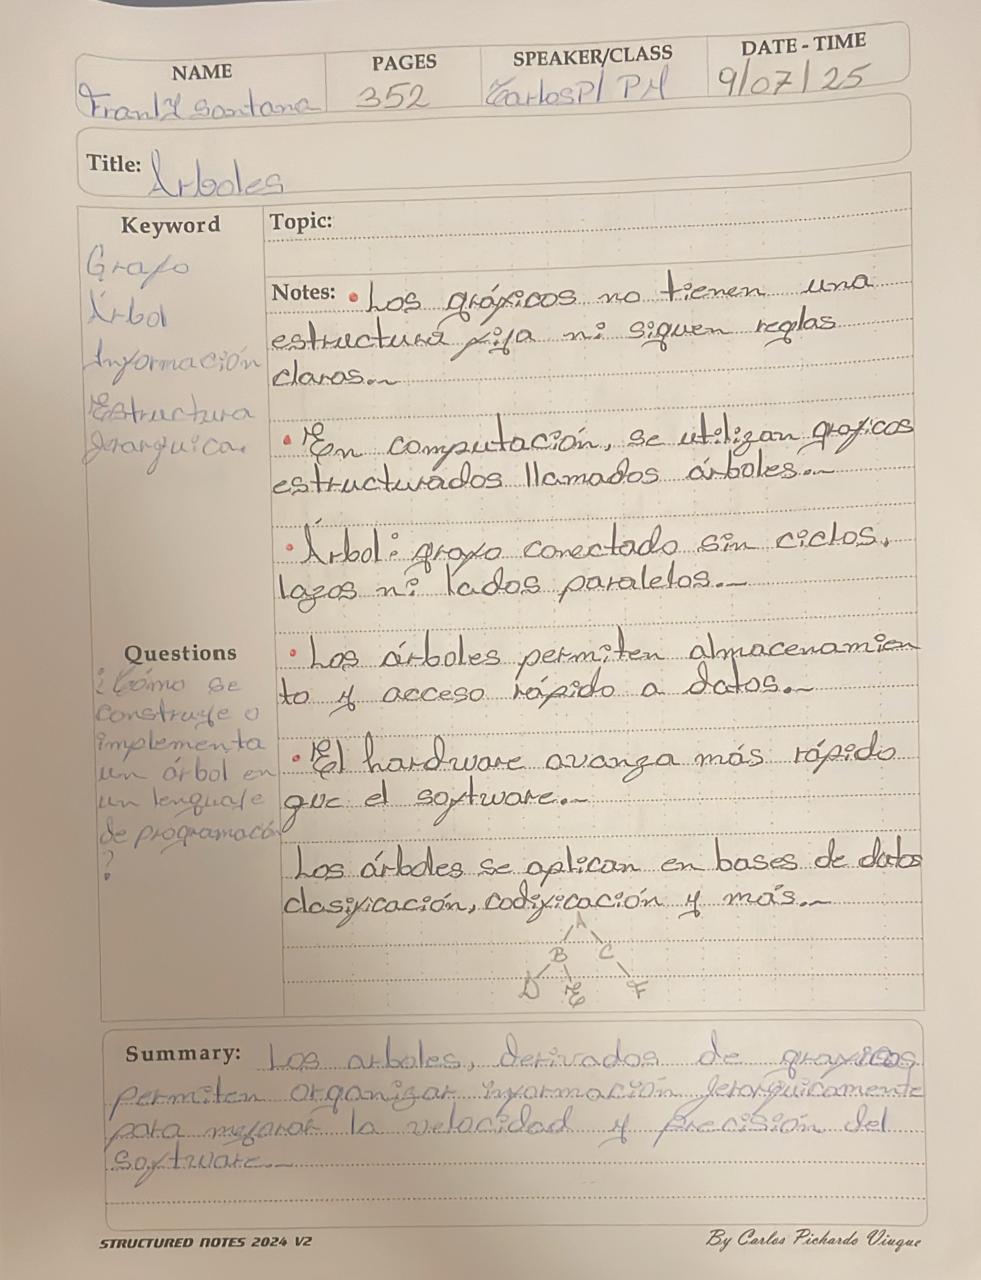 NAME
PAGES
SPEAKER/CLASS
DATE - TIME
Santana
352
CarlosP/ PM
9/07/25
Title: Árboles
Keyword
Grafo
Árbol
Información
Estructura
jerarquica.
Topic:
Notes: • Los gráficos no tienen una
estructura fija ni siguen reglas
claras.~
• En computación, se utilizan graficos
estructurados llamados árboles.~
• Árbol: grafo conectado sin ciclos,
lazos ni lados paralelos.~
• Los árboles permiten almacenamien
to y acceso rápido a datos.~
• El hardware avanza más rápido
que el software.~
Los árboles se aplican en bases de datos
clasificación, codificación y más.~
A
B C
D E F
Questions
¿Cómo se
construye o
implementa
un árbol en
un lenguaje
de programación
?
Summary: Los arboles, derivados de graficos,
permiten organizar información jerarquicamente
para mejorar la velocidad y precisión del
software.~
STRUCTURED NOTES 2024 V2
By Carlos Pichardo Viuque